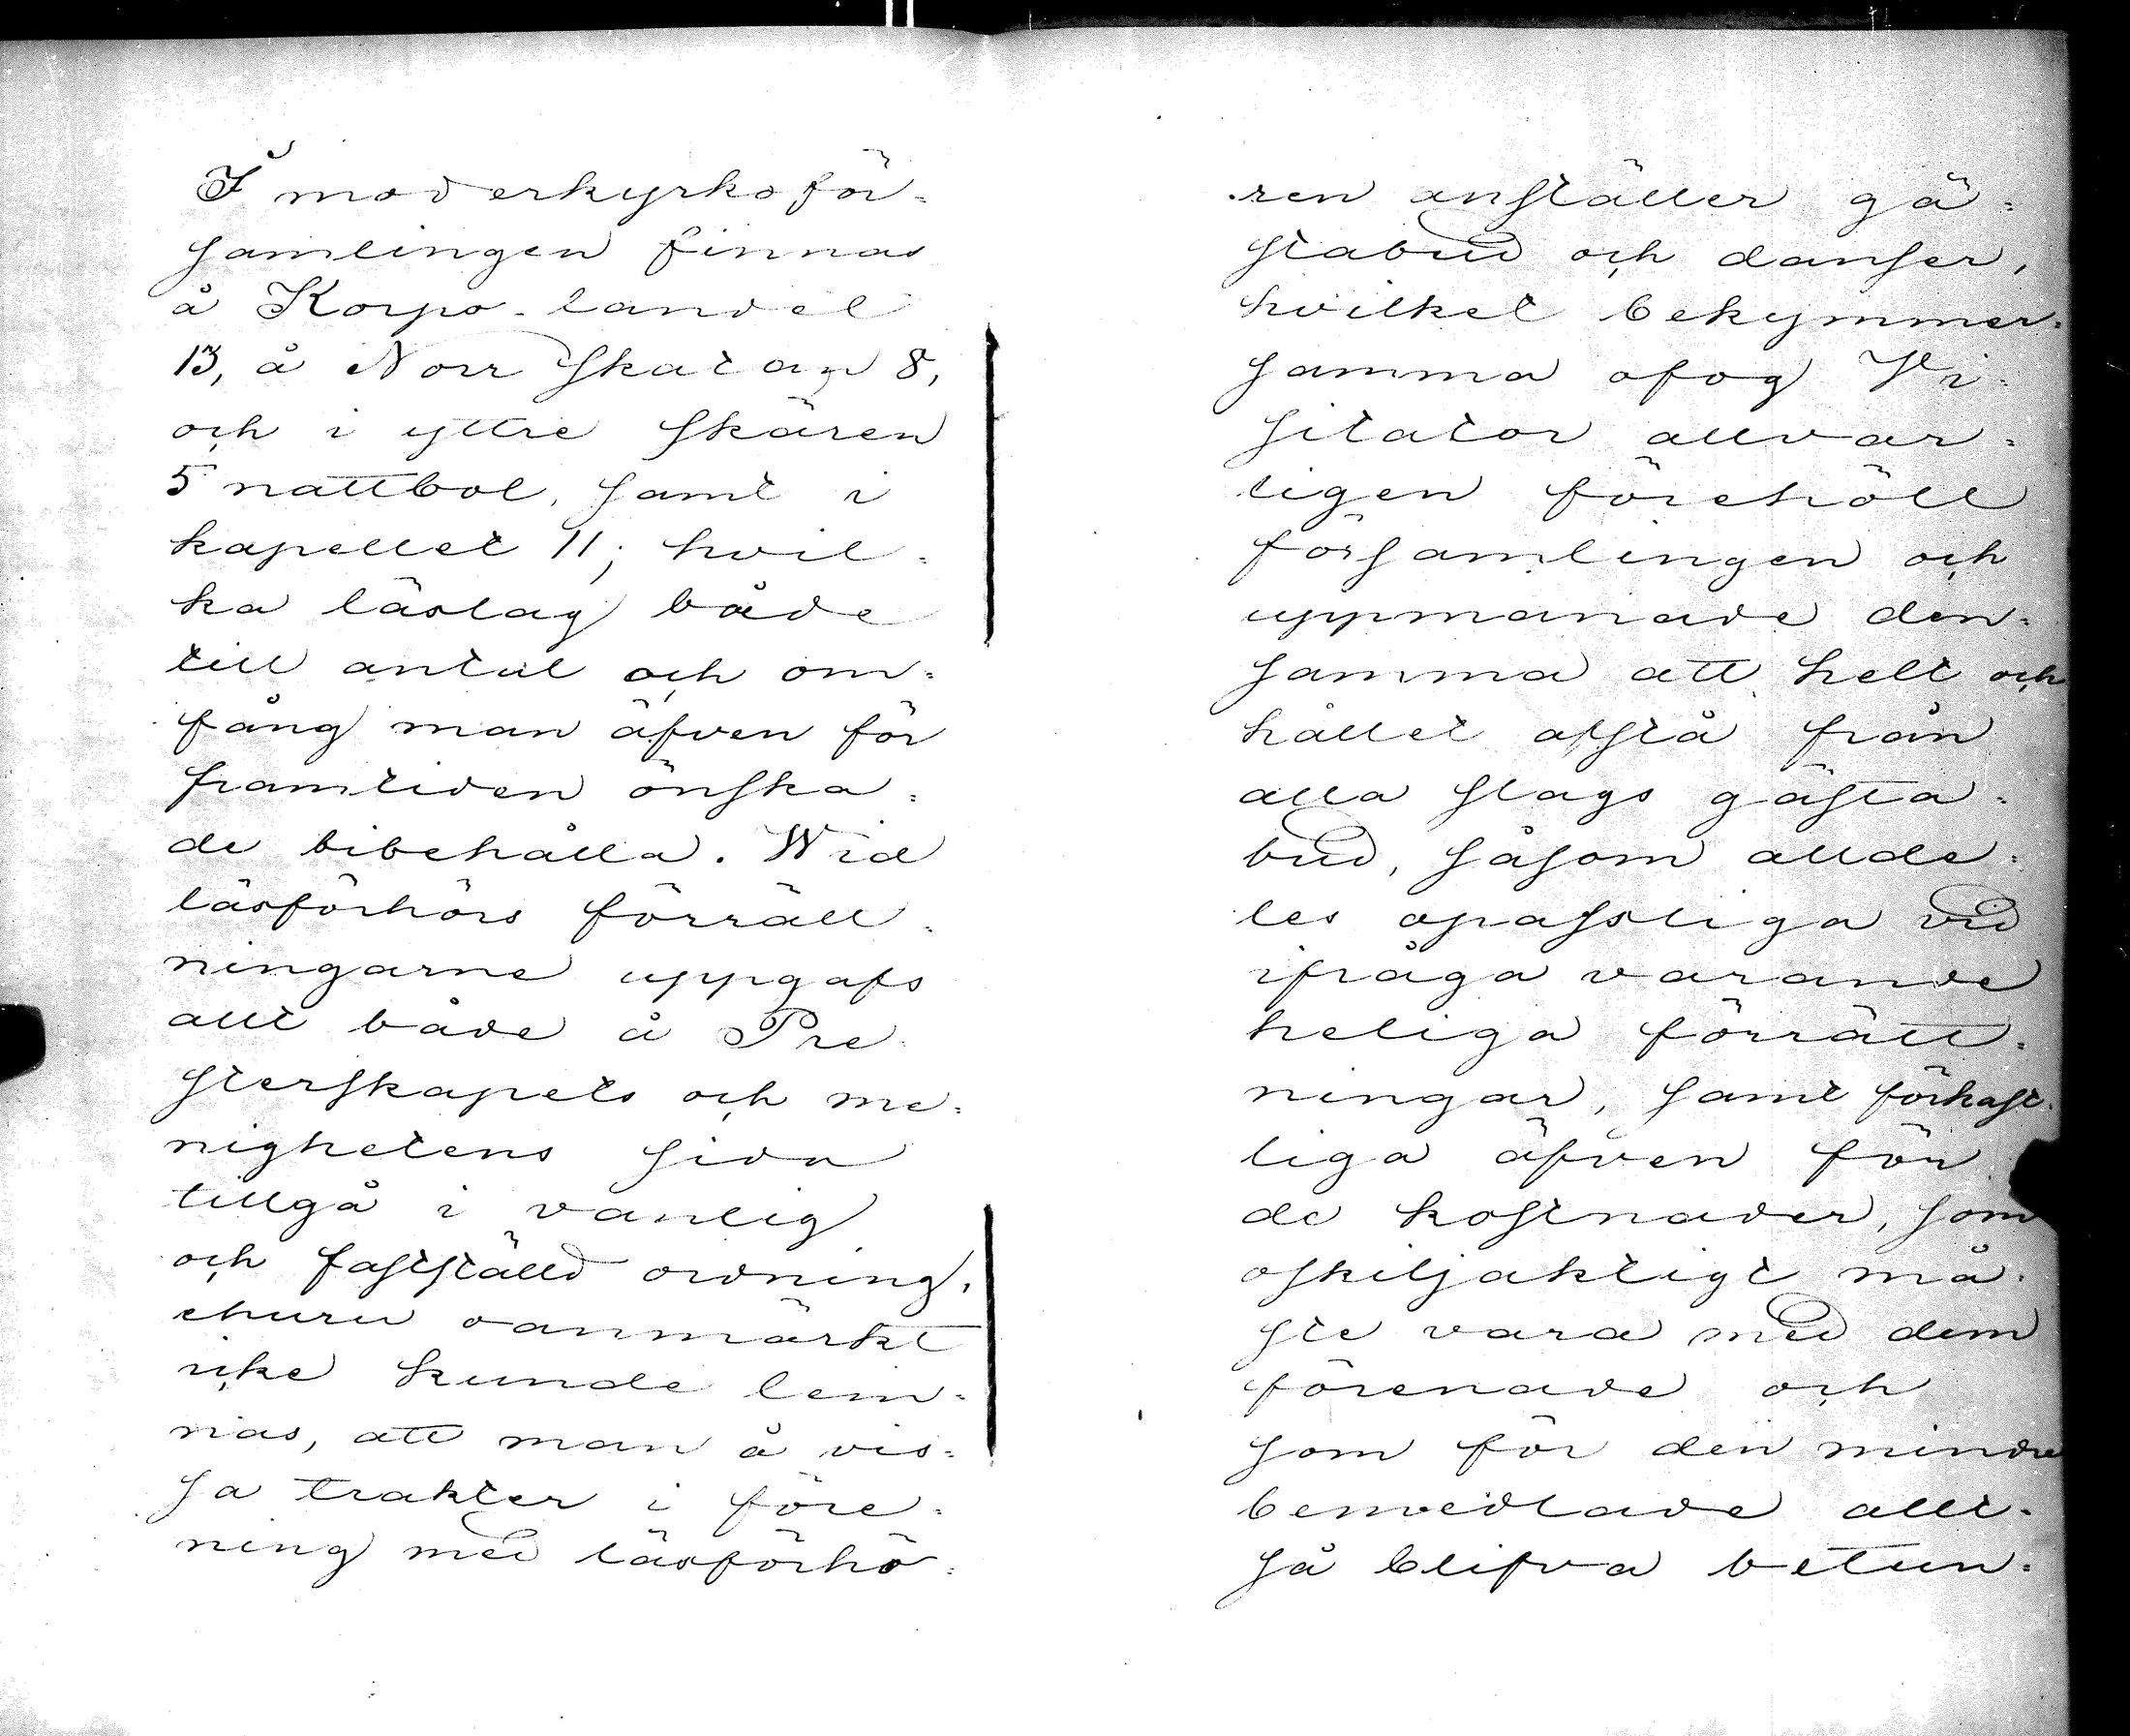 I moderkyrkoför=
samlingen finnas
å Korpo-landel
13, å Norrskatan 8,
och i yttre skären
5 nattbol, samt i
kapellet 11; hvil=
ka läslag både
till antal och om=
fång man äfven för
framtiden önska=
de bibehålla. Wid
läsförhörs förrätt=
ningarne uppgafs
allt både å Pre=
sterskapets och me=
nighetens sida
tillgå i vanlig
och fastställd ordning,
ehuru oanmärkt
icke kunde lem=
nas, att man å vis=
sa trakter i före=
ning med läsförhö=
ren anställer gä=
stabud och danser,
hvilket bekymmer=
samma ofog Vi=
sitator allvar=
ligen förehöll
församlingen och
uppmanade den=
samma att helt och
hållet afstå från
alla slags gästa=
bud, såsom allde=
les opassliga vid
ifråga varande
heliga förrätt=
ningar, samt förkast=
liga äfven för
de kostnader, som
oskiljaktigt må=
ste vara med dem
förenade och
som för den mindre
bemedlade allt=
så blifva betun=